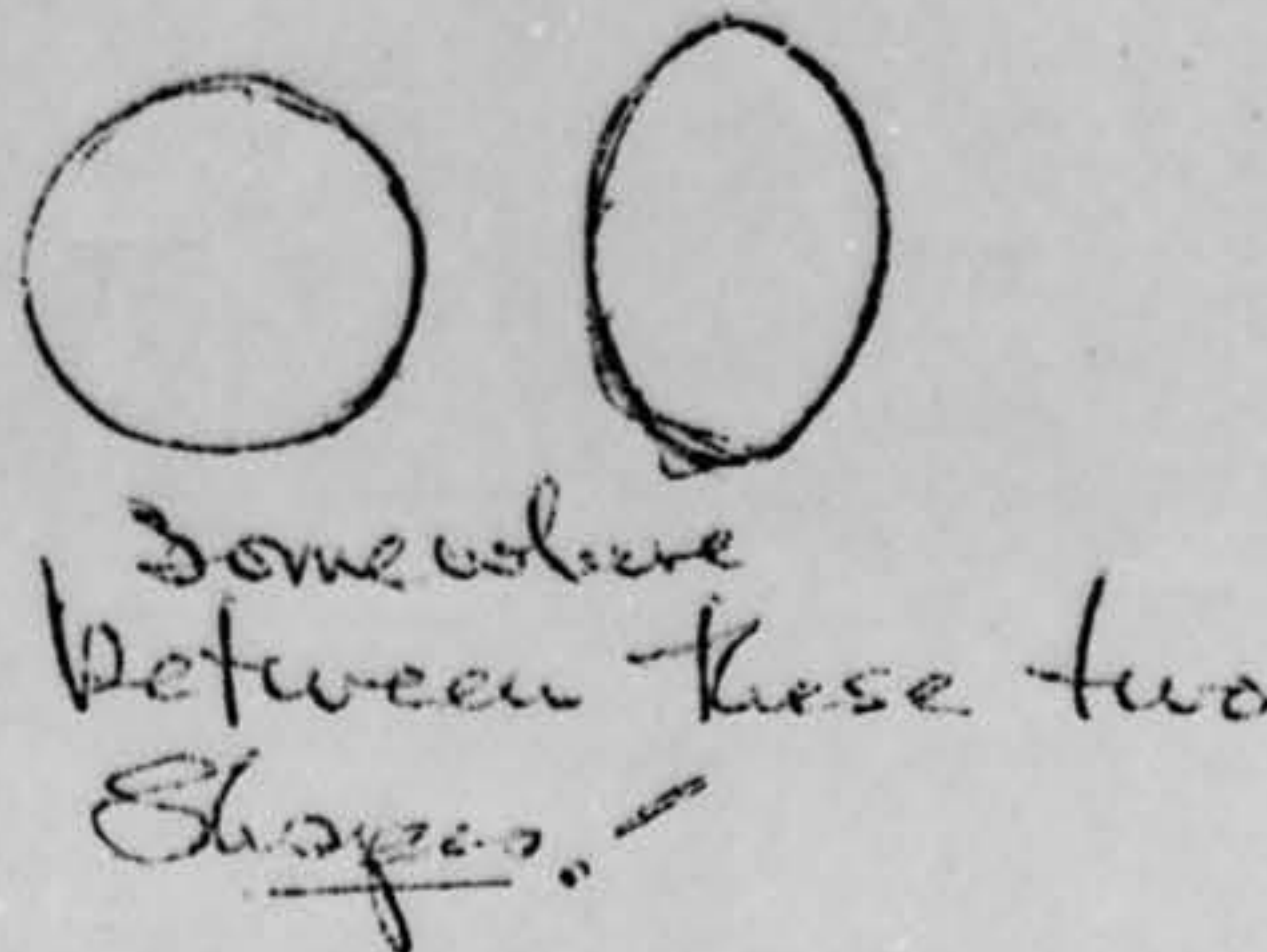 Somewhere
between these two
Shapes. -